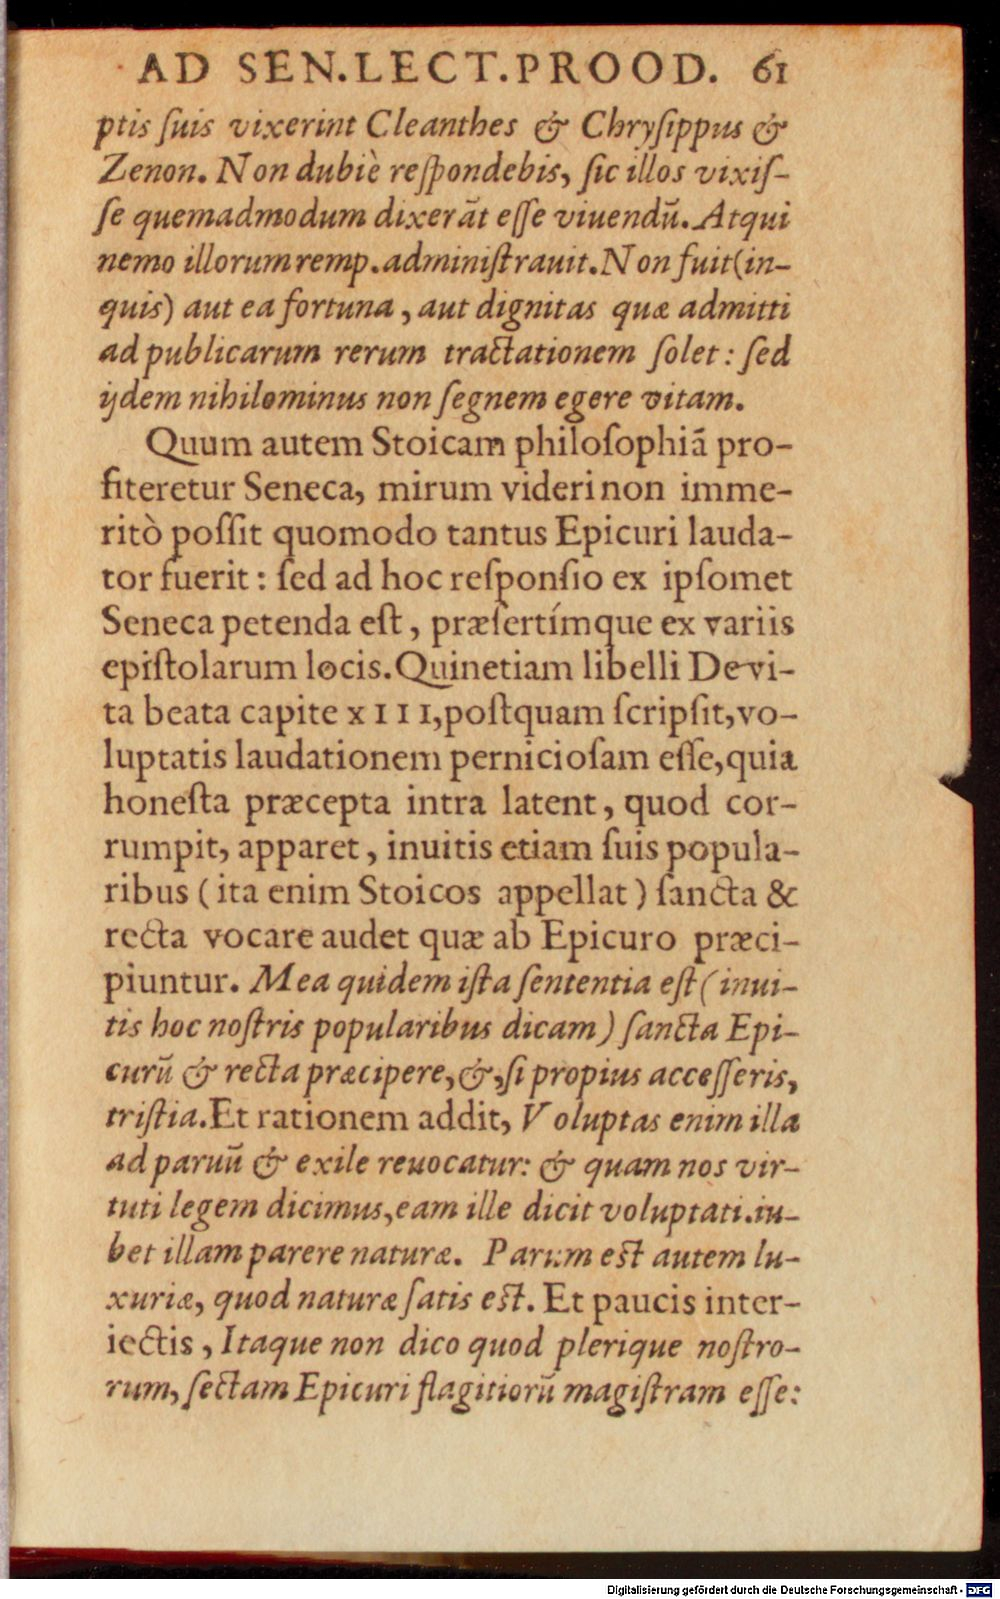 AD SEN.LECT.PROOD. 61
ptis ſuis vixerint Cleanthes & Chryſippus &
Zenon. Non dubiè reſpondebis, ſic illos vixiſ-
ſe quemadmodum dixerãt eſſe viuendũ. Atqui
nemo illorum remp. adminiſtrauit. Non fuit (in-
quis) aut ea fortuna, aut dignitas quæ admitti
ad publicarum rerum tractationem ſolet: ſed
ijdem nihilominus non ſegnem egere vitam.
Quum autem Stoicam philoſophiã pro-
fiteretur Seneca, mirum videri non imme-
ritò poſſit quomodo tantus Epicuri lauda-
tor fuerit: ſed ad hoc reſponſio ex ipſomet
Seneca petenda eſt, præſertímque ex variis
epiſtolarum locis. Quinetiam libelli De vi-
ta beata capite XIII, poſtquam ſcripſit, vo-
luptatis laudationem pernicioſam eſſe, quia
honeſta præcepta intra latent, quod cor-
rumpit, apparet, inuitis etiam ſuis popula-
ribus (ita enim Stoicos appellat) ſancta &
recta vocare audet quæ ab Epicuro præci-
piuntur. Mea quidem iſta ſententia eſt (inui-
tis hoc noſtris popularibus dicam) ſancta Epi-
curũ & recta præcipere, &, ſi propius acceſſeris,
triſtia. Et rationem addit, Voluptas enim illa
ad paruũ & exile reuocatur: & quam nos vir-
tuti legem dicimus, eam ille dicit voluptati. iu-
bet illam parere naturæ. Parum eſt autem lu-
xuriæ, quod naturæ ſatis eſt. Et paucis inter-
iectis, Itaque non dico quod plerique noſtro-
rum, ſectam Epicuri flagitiorũ magiſtram eſſe:
Digitalisierung gefördert durch die Deutsche Forschungsgemeinschaft - DFG